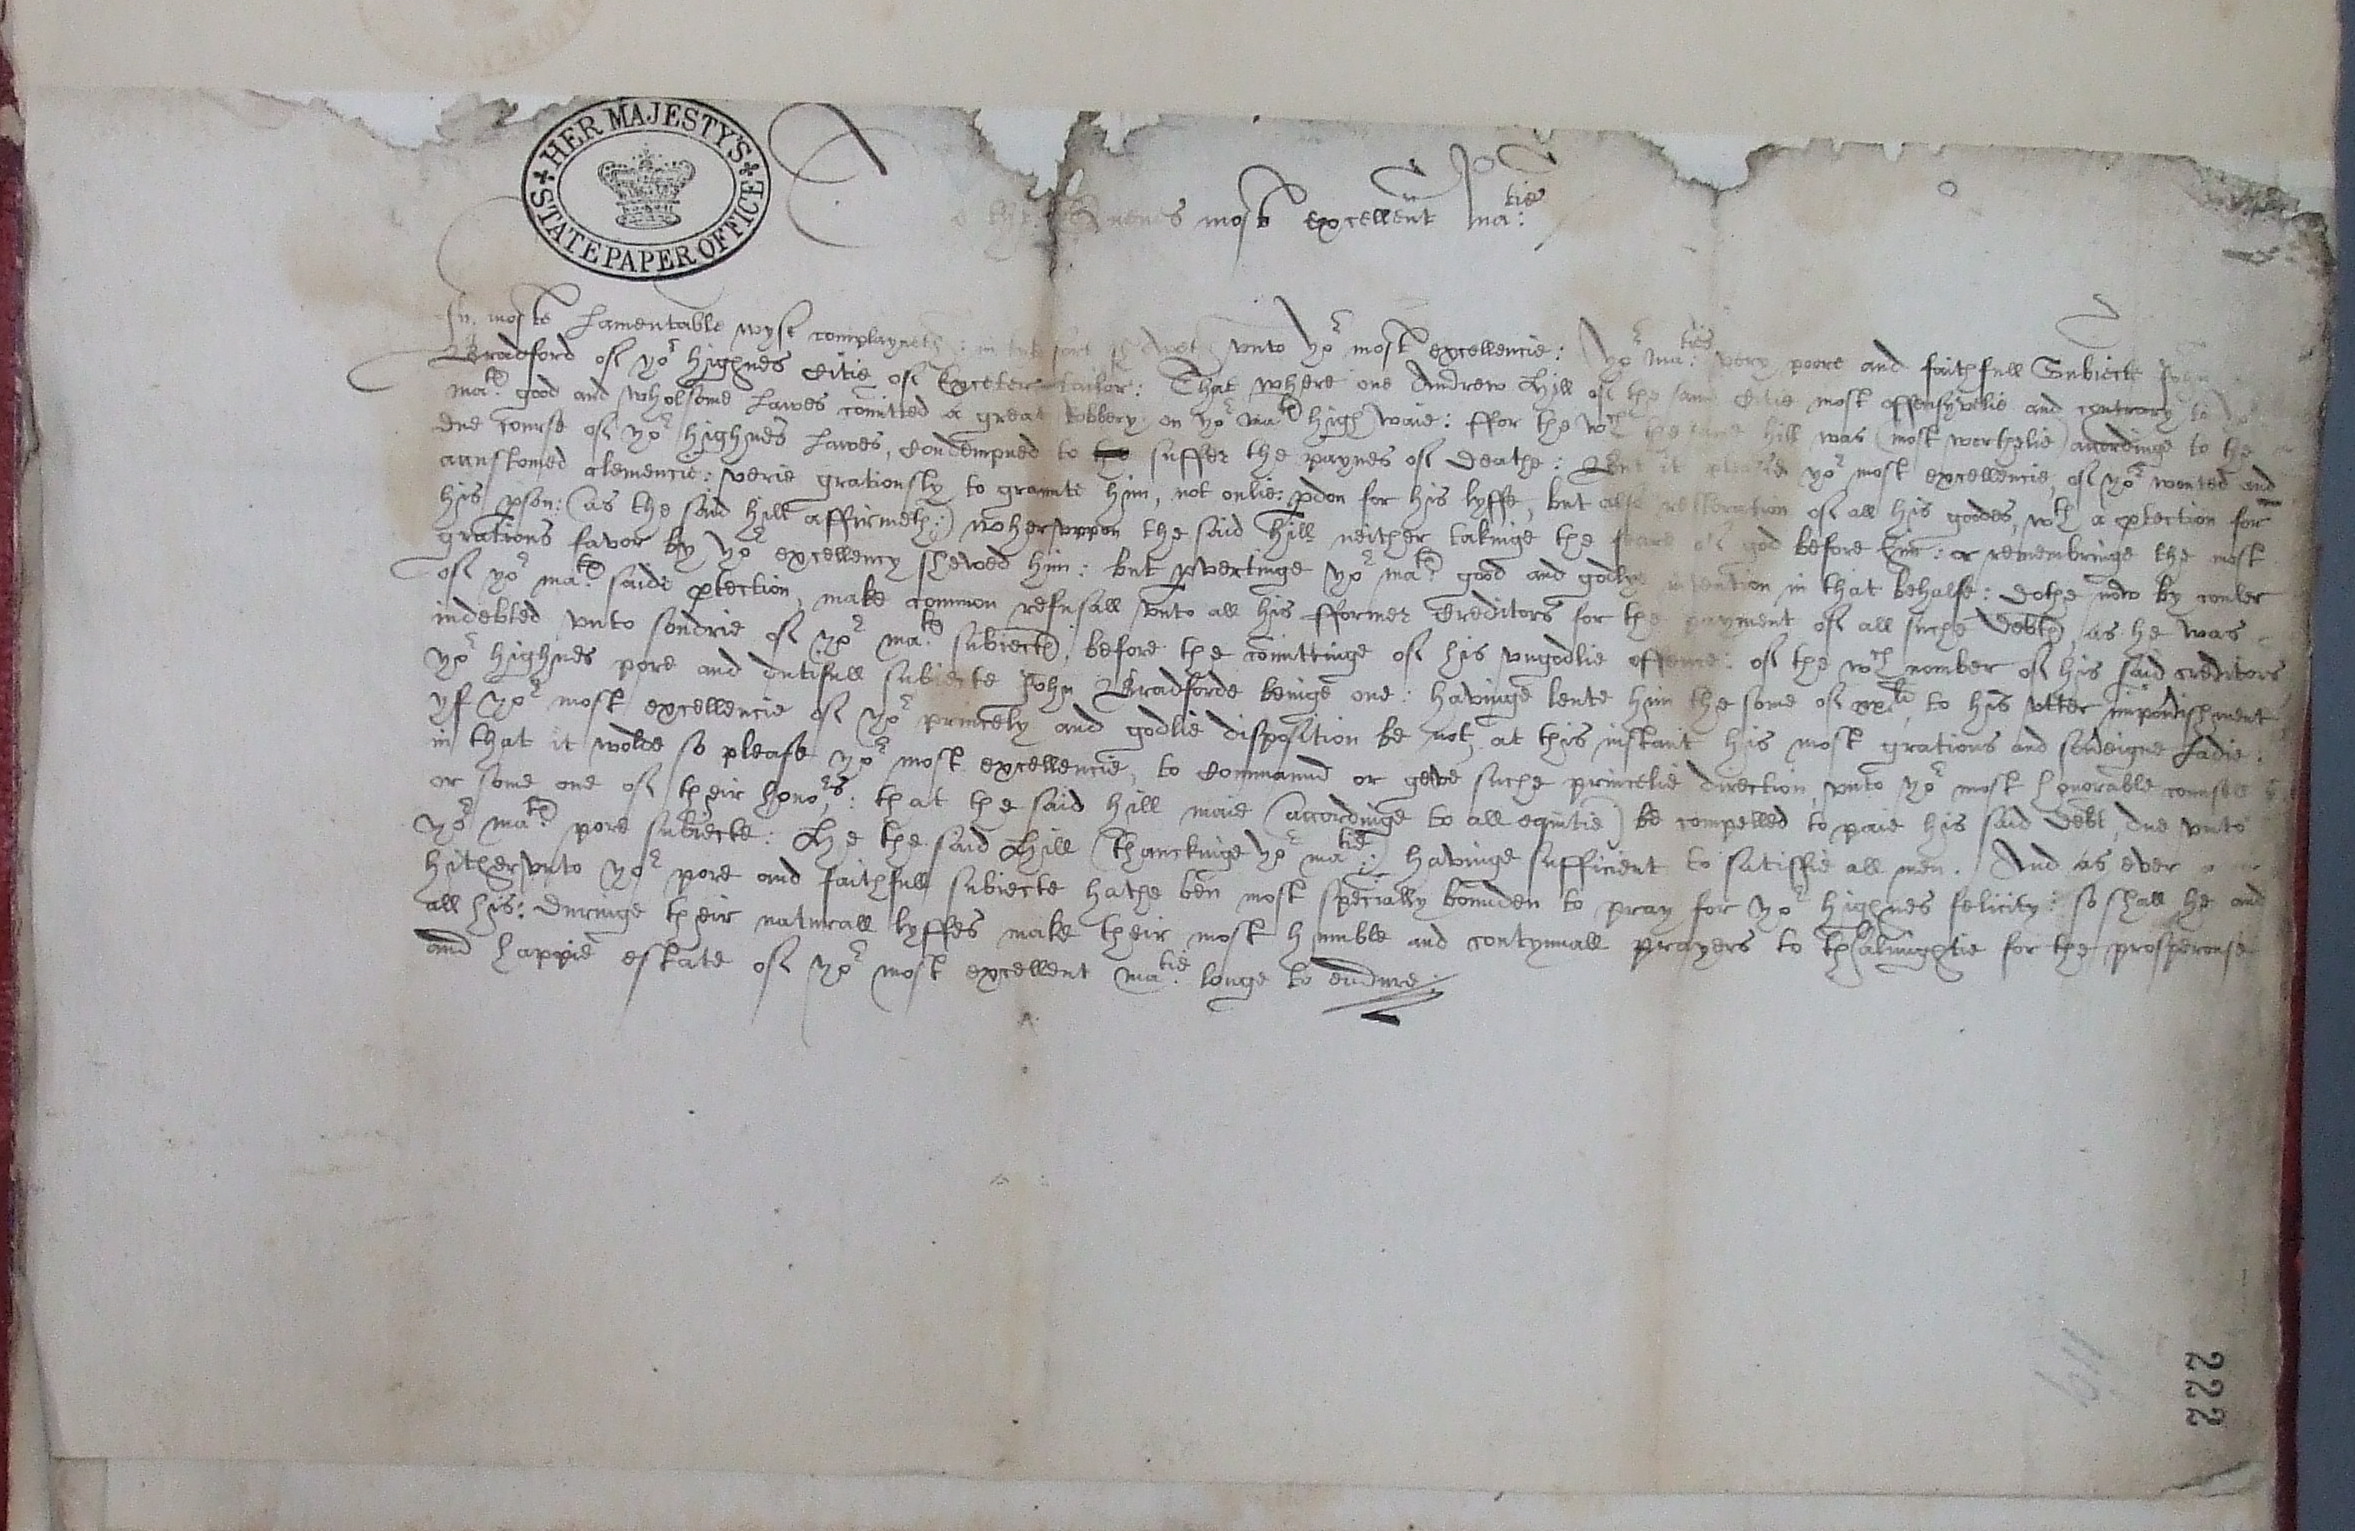 HER MAJESTY'S STATE PAPER OFFICE
the Quenes most excellent ma:tie
In moste Lamentable wyse complayneth: vnto yor most excellencie: yor ma:ties very poore and faithfull Subiecte John
Bradford of yor highnes Citie of Exceter tailor: That where one Andrew Hill of the same Citie most offensyvelie and contrary to yor
mate good and wholsome Lawes comitted a great Robbery on yor mate high waie: ffor the wch the same hill was (most worthelie) accordinge to the
due course of yor highnes Lawes, Condempned to the suffer the paynes of deathe: But it pleased yor most excellencie, of yor wonted and
accustomed clemencie: verie gratiously to graunte him, not onlie: pdon for his lyffe, but also restoration of all his goodes, wth a ptection for
his pson: (as the said hill affirmeth:) wheruppon the said Hill neither takinge the feare of god before hime: or remembringe the most
gratious favor by yor excellency shewed him: but pvertinge yor mate good and godlye intention in that behalfe: dothe now by couler
of yor mate saide ptection, make common refusall vnto all his fformer Creditors for the payment of all suche debtes, as he was
indebted vnto sondrie of yor mate subiectes, before the comittinge of his vngodlie offence: of the wch nomber of his said creditors
yor highnes pore and dutifull subiecte John Bradforde beinge one: havinge lente him the some of xxli, to his vtter impovishment
yf yor most excellencie of yor princely and godlie disposition be not at this instant his most gratious and soveigne Ladie:
in that it wolde so please yor most excellencie, to Commaund or geve suche princelie direction, vnto yor most honorable counsell
or some one of their honors: that the said Hill maie (accordinge to all equitie) be compelled to paie his said debt, due vnto
yor mate pore subiecte: He the said Hill (thanckinge yor matie:) havinge sufficient to satisfie all men. And as ever
hithervnto yor pore and faithfull subiecte hathe ben most specially bounden to pray for yor highnes felicity: so shall he and
all his: duringe their naturall lyffes make their most humble and contynuall prayers to thalmightie for the prosperouse
and happie estate of yor most excellent matie longe to endure:
222